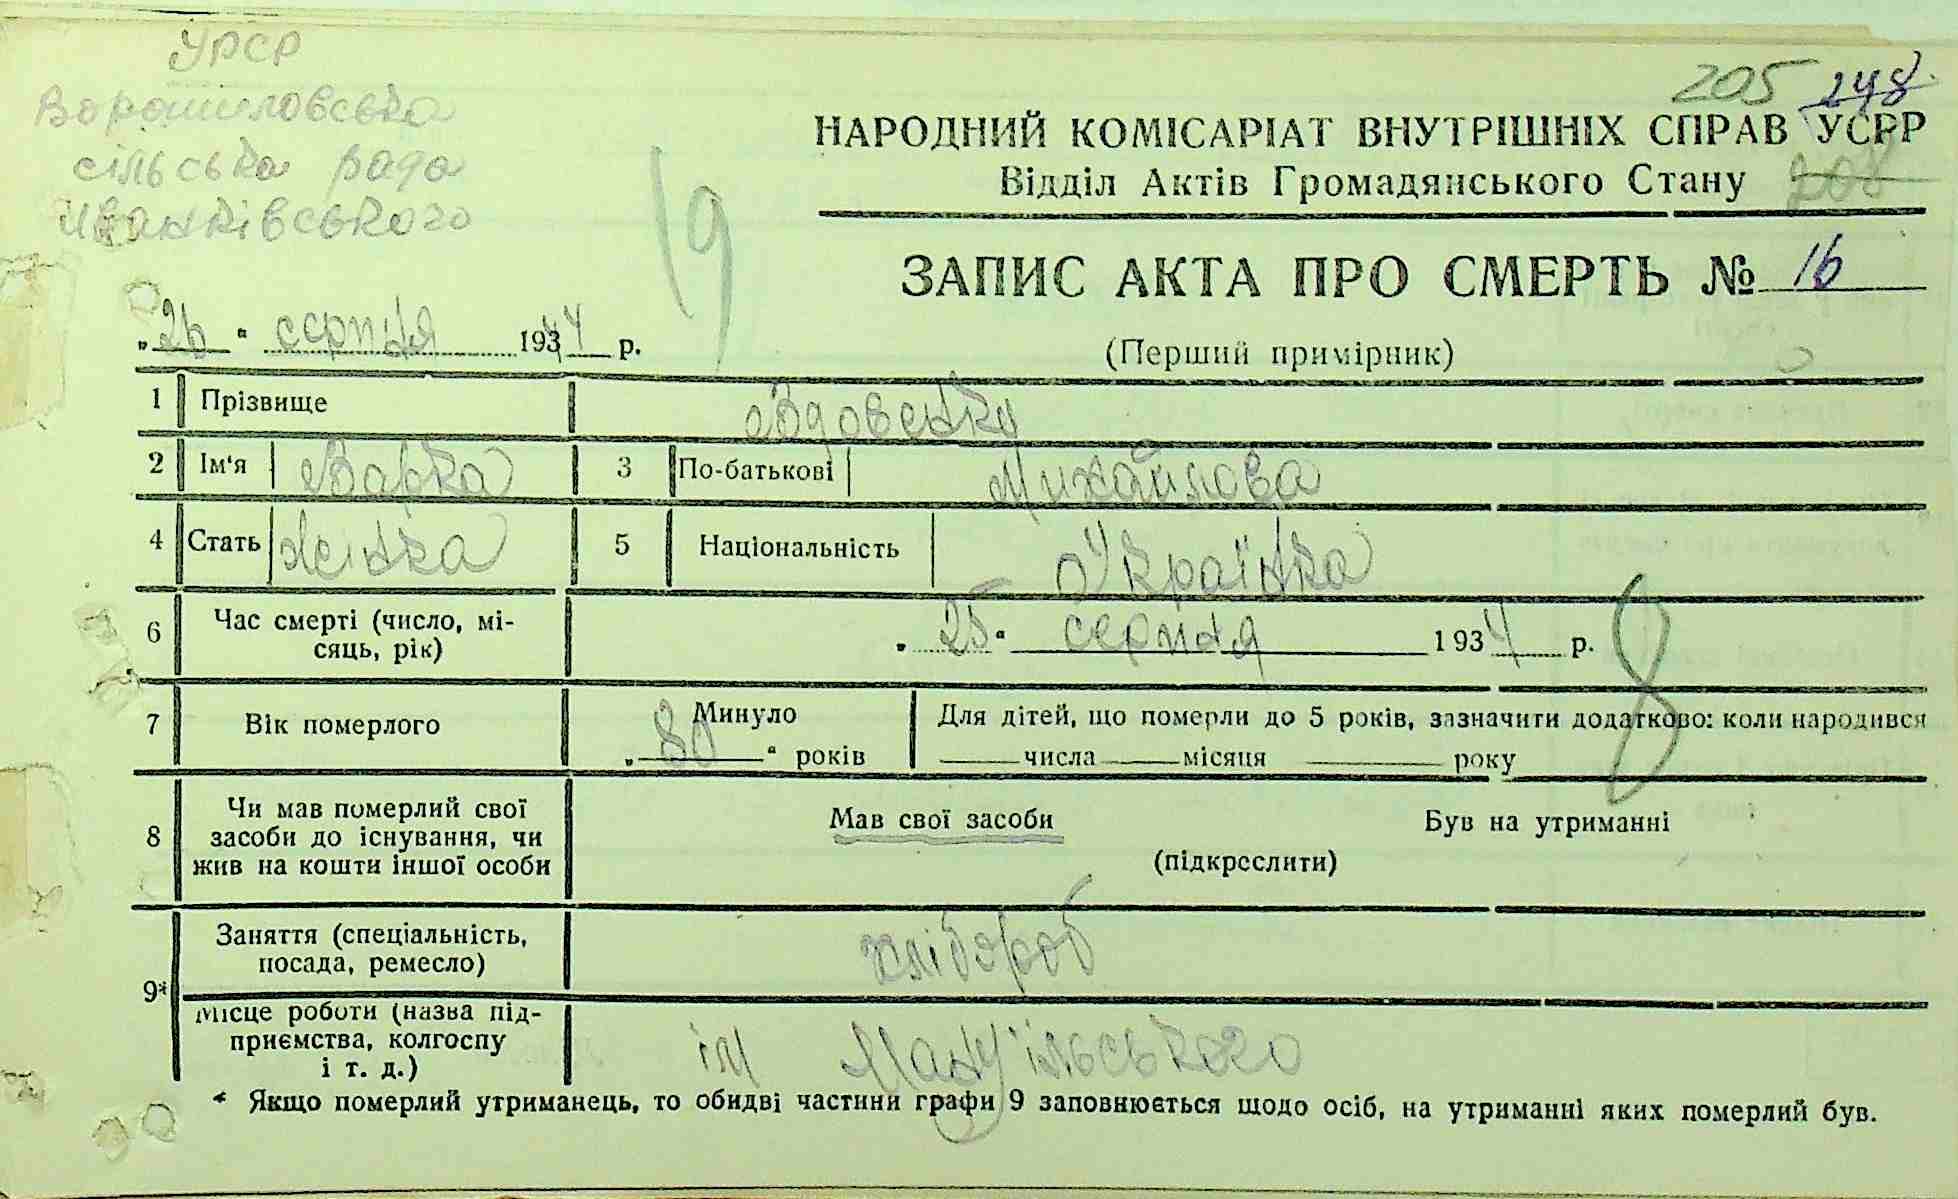 УРСР
Ворошиловська
сільська рада
Іванківського
205 248
НАРОДНИЙ КОМІСАРІАТ ВНУТРІШНІХ СПРАВ УСРР
Відділ Актів Громадянського Стану 208
19
ЗАПИС АКТА ПРО СМЕРТЬ № 16
„26“ серпня 1944 р.
(Перший примірник)
1 Прізвище Вдовенко
2 Ім'я Варка 3 По-батькові Михайлова
4 Стать Жінка 5 Національність Українка
6 Час смерті (число, мі-
сяць, рік) „25“ серпня 1934 р.
8
7 Вік померлого Минуло Для дітей, що померли до 5 років, зазначити додатково: коли народився
„80“ років числа місяця року
8 Чи мав померлий свої
засоби до існування, чи
жив на кошти іншої особи Мав свої засоби Був на утриманні
(підкреслити)
9* Заняття (спеціальність,
посада, ремесло) хлібороб
Місце роботи (назва під-
приємства, колгоспу
і т. д.) ім Мануїльського
* Якщо померлий утриманець, то обидві частини графи 9 заповнюється щодо осіб, на утриманні яких померлий був.